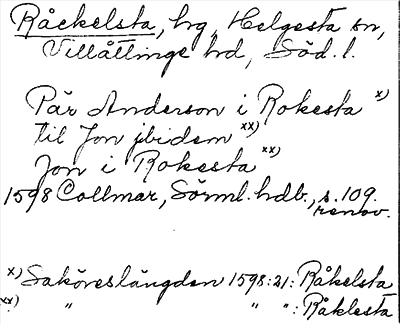 Råckelsta, hg, Helgesta sn,
Villåttinge hd, Söd. l.
Pär Anderson i Rokesta x)
til Jon jbidem xx)
Jon i Rokesta xx)
1598 Collmar, Sörml. hdb., s. 109.
renov.
x) Saköreslängden 1598:21: Råkelsta
xx) " " " : Råklesta